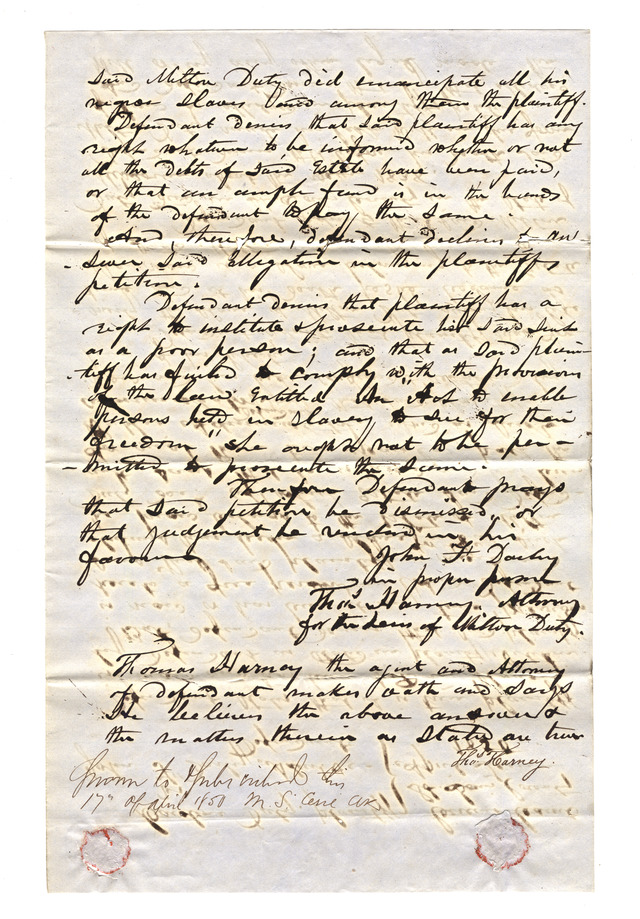 said Milton Duty did emancipate all his
negroe slaves and among them the plaintiff.
Defendant denies that said plaintiff has any
right whatever to be informed whether or not
all the Debts of said Estate have been paid,
or that an ample fund is in the hands
of the defendant to pay the same.
And, therefore, defendant declines to an-
-swer said Allegation in the plaintiffs
petition.
Defendant denies that plaintiff has a
right to institute & prosecute his said suit
as a poor person; and that as said plain-
-tiff has failed to comply with the provisions
of the law Entitled "An Act to enable
persons held in slavery to sue for their
freedom" she ought not to be per-
-mitted to prosecute the same.
Therefore Defendant prays
that said petition be dismissed, or
that judgement be rendered in his
favour
John F. Darby
in proper person
Thos. Harney. Attorney
for the heirs of Milton Duty.
Thomas Harney the agent and Attorney
of defendant makes oath and says
He believes the above answer &
the matters therein as stated are true
Thos. Harney.
Sworn to & subscribed this
17th of april 1850 M. S. Cerré Clk